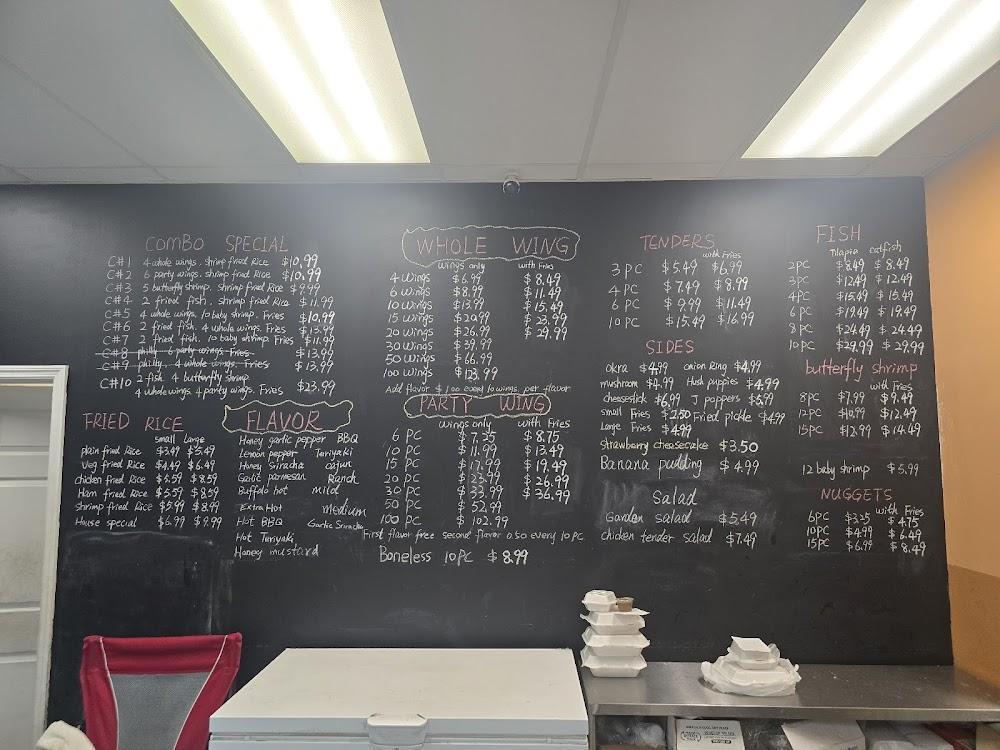 COMBO SPECIAL
C#1 4 whole wings, shrimp fried Rice $10.99
C#2 6 party wings, shrimp fried Rice $10.99
C#3 5 butterfly shrimp, shrimp fried Rice $9.99
C#4 2 fried fish, shrimp fried Rice $11.99
C#5 4 whole wings, 10 baby shrimp, Fries $10.99
C#6 2 fried fish, 4 whole wings, Fries $13.99
C#7 2 fried fish, 10 baby shrimp Fries $11.99
C#8 philly 6 party wings Fries $13.99
C#9 philly, 4 whole wings, Fries $13.99
C#10 2 fish, 4 butterfly shrimp
4 whole wings, 4 party wings, Fries $23.99
FRIED RICE
small Large
plain fried Rice $3.49 $5.49
Veg fried Rice $4.49 $6.49
chicken fried Rice $5.59 $8.59
Ham fried Rice $5.59 $8.59
shrimp fried Rice $5.99 $8.99
House special $6.99 $9.99
FLAVOR
Honey garlic pepper BBQ
Lemon pepper Teriyaki
Honey Siracha cajun
Garlic parmesan Ranch
Buffalo hot mild
Extra Hot medium
Hot BBQ Garlic Siracha
Hot Teriyaki
Honey mustard
WHOLE WING
wings only with Fries
4 wings $6.99 $8.49
6 wings $8.99 $11.49
10 wings $13.99 $15.49
15 wings $20.99 $23.99
20 wings $26.99 $29.99
30 wings $39.99
50 wings $66.99
100 wings $123.99
Add flavor $1.00 every 10 wings, per flavor
PARTY WING
wings only with Fries
6 PC $7.25 $8.75
10 PC $11.99 $13.49
15 PC $17.99 $19.49
20 PC $23.99 $26.99
30 PC $33.99 $36.99
50 PC $52.99
100 PC $102.99
First flavor free second flavor 0.50 every 10 PC
Boneless 10 PC $8.99
TENDERS
with Fries
3 PC $5.49 $6.99
4 PC $7.49 $8.99
6 PC $9.99 $11.49
10 PC $15.49 $16.99
SIDES
okra $4.99 onion Ring $4.99
mushroom $4.99 Hush puppies $4.99
cheesestick $6.99 J poppers $5.99
small Fries $2.50 Fried pickle $4.99
Large Fries $4.99
strawberry cheesecake $3.50
Banana pudding $4.99
Salad
Garden salad $5.49
chicken tender salad $7.49
FISH
Tilapia catfish
2PC $8.49 $8.49
3PC $12.49 $12.49
4PC $15.49 $15.49
6PC $19.49 $19.49
8PC $24.49 $24.49
10PC $29.99 $29.99
butterfly shrimp
with Fries
8PC $7.99 $9.49
12PC $10.99 $12.49
15PC $12.99 $14.49
12 baby shrimp $5.99
NUGGETS
with Fries
6PC $3.25 $4.75
10PC $4.99 $6.49
15PC $6.99 $8.49